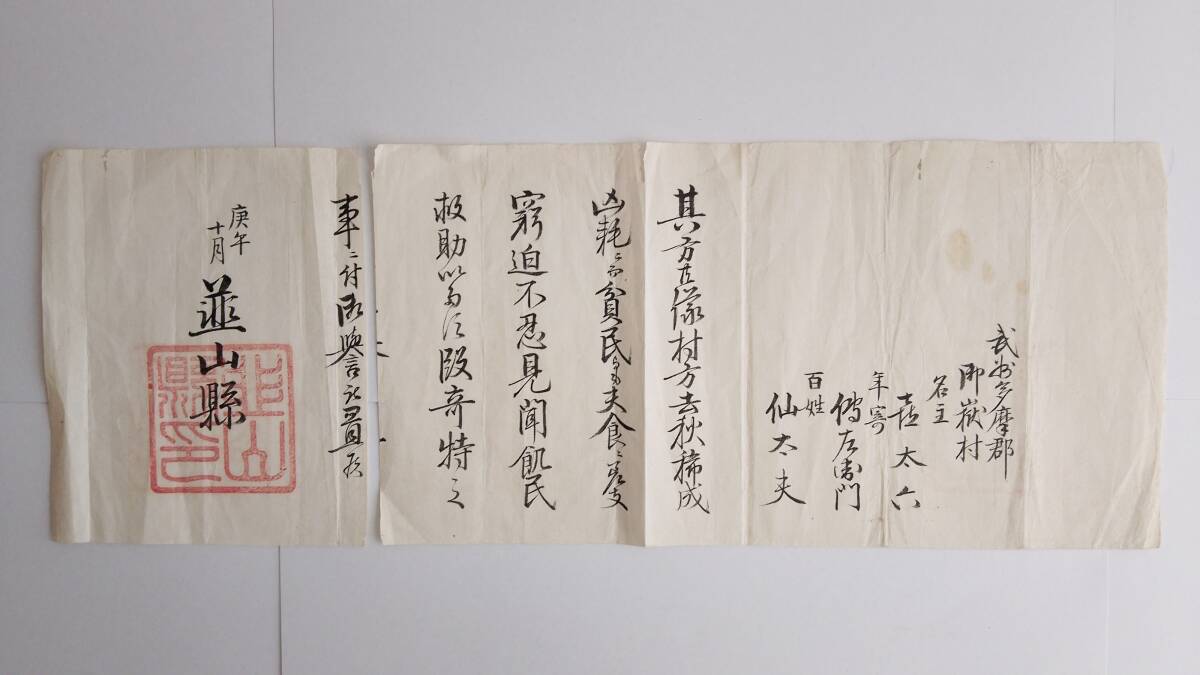 武州多摩郡
御嶽村
名主
喜太六
年寄
傳左衛門
百姓
仙太夫
其方共儀村方去秋稀成
凶耗ニ而貧民共夫食ニ差支
窮迫不忍見聞飢民
救助いたし候段奇特之
事ニ付誉置
庚午
十月
韮山縣
韮山縣印